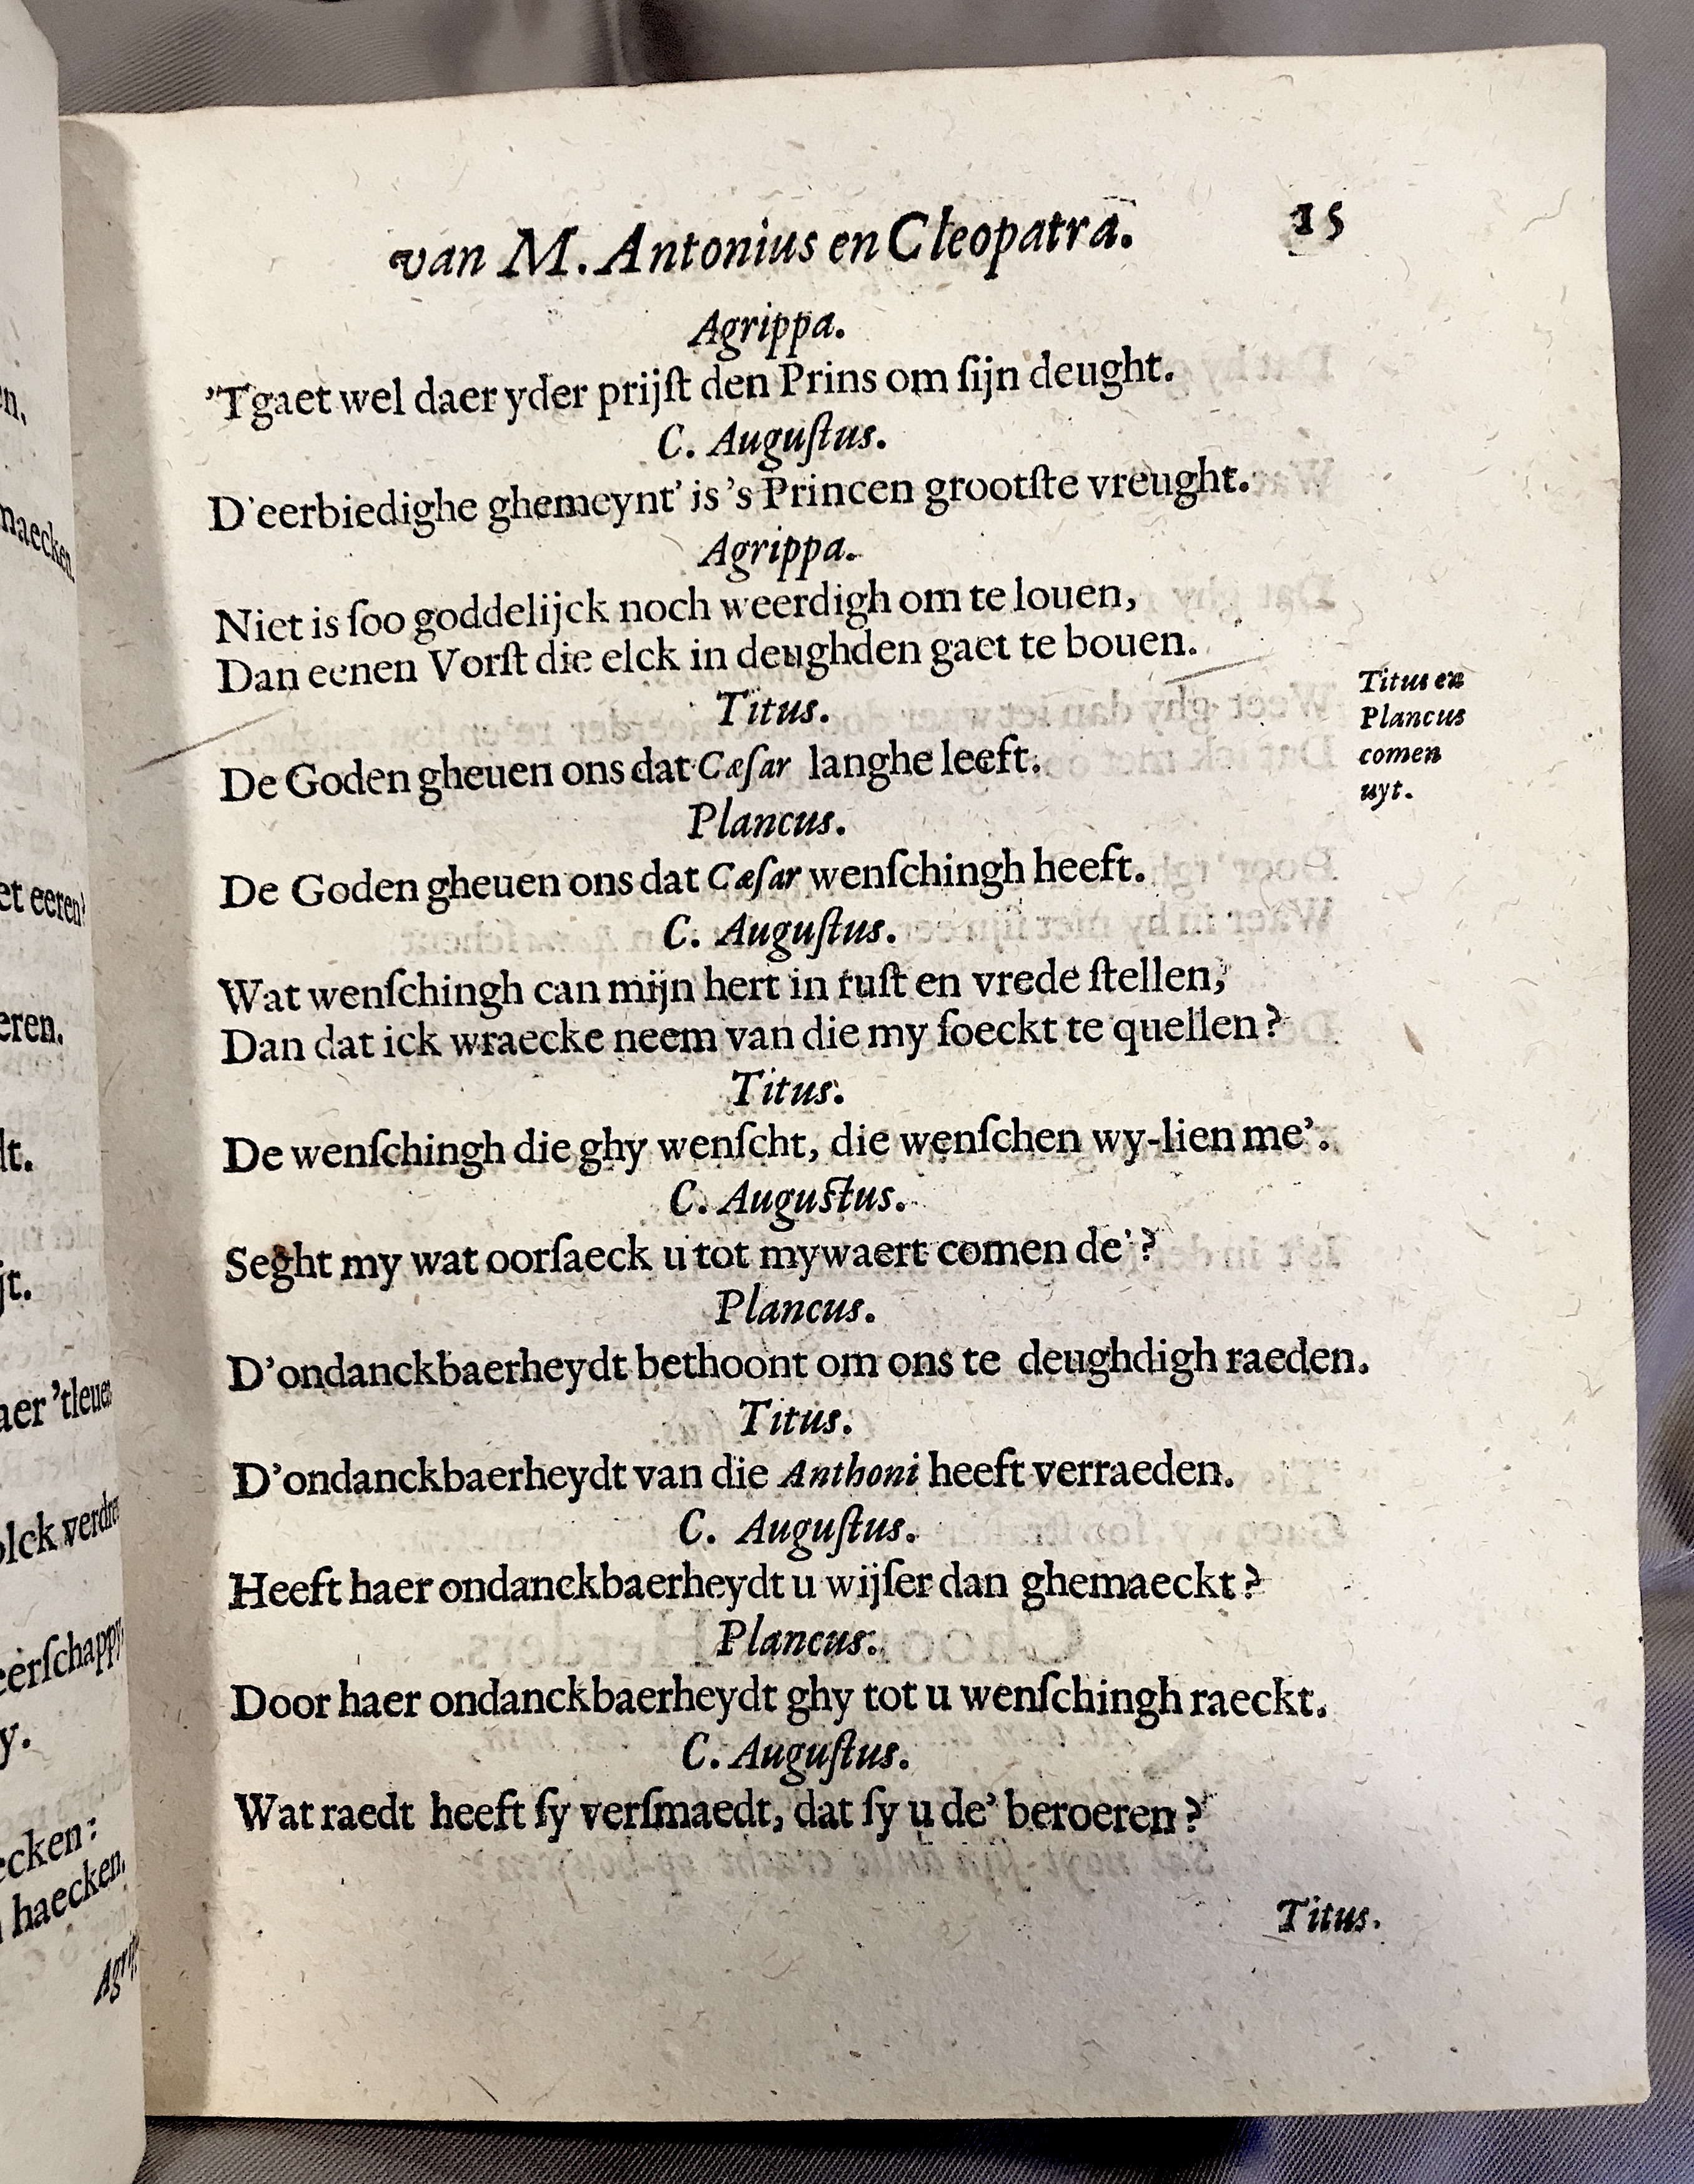 van M. Antonius en Cleopatra. 15
Agrippa.
'Tgaet wel daer yder prijſt den Prins om ſijn deught.
C. Auguſtus.
D'eerbiedighe ghemeynt' is 's Princen grootſte vreught.
Agrippa.
Niet is ſoo goddelijck noch weerdigh om te louen,
Dan eenen Vorſt die elck in deughden gaet te bouen.
Titus en
Plancus
comen
uyt.
Titus.
De Goden gheuen ons dat Cæſar langhe leeft.
Plancus.
De Goden gheuen ons dat Cæſar wenſchingh heeft.
C. Auguſtus.
Wat wenſchingh can mijn hert in ruſt en vrede ſtellen,
Dan dat ick wraecke neem van die my ſoeckt te quellen?
Titus.
De wenſchingh die ghy wenſcht, die wenſchen wy-lien me'.
C. Auguſtus.
Seght my wat oorſaeck u tot mywaert comen de'?
Plancus.
D'ondanckbaerheydt bethoont om ons te deughdigh raeden.
Titus.
D'ondanckbaerheydt van die Anthoni heeft verraeden.
C. Auguſtus.
Heeft haer ondanckbaerheydt u wijſer dan ghemaeckt?
Plancus.
Door haer ondanckbaerheydt ghy tot u wenſchingh raeckt.
C. Auguſtus.
Wat raedt heeft ſy verſmaedt, dat ſy u de' beroeren?
Titus.